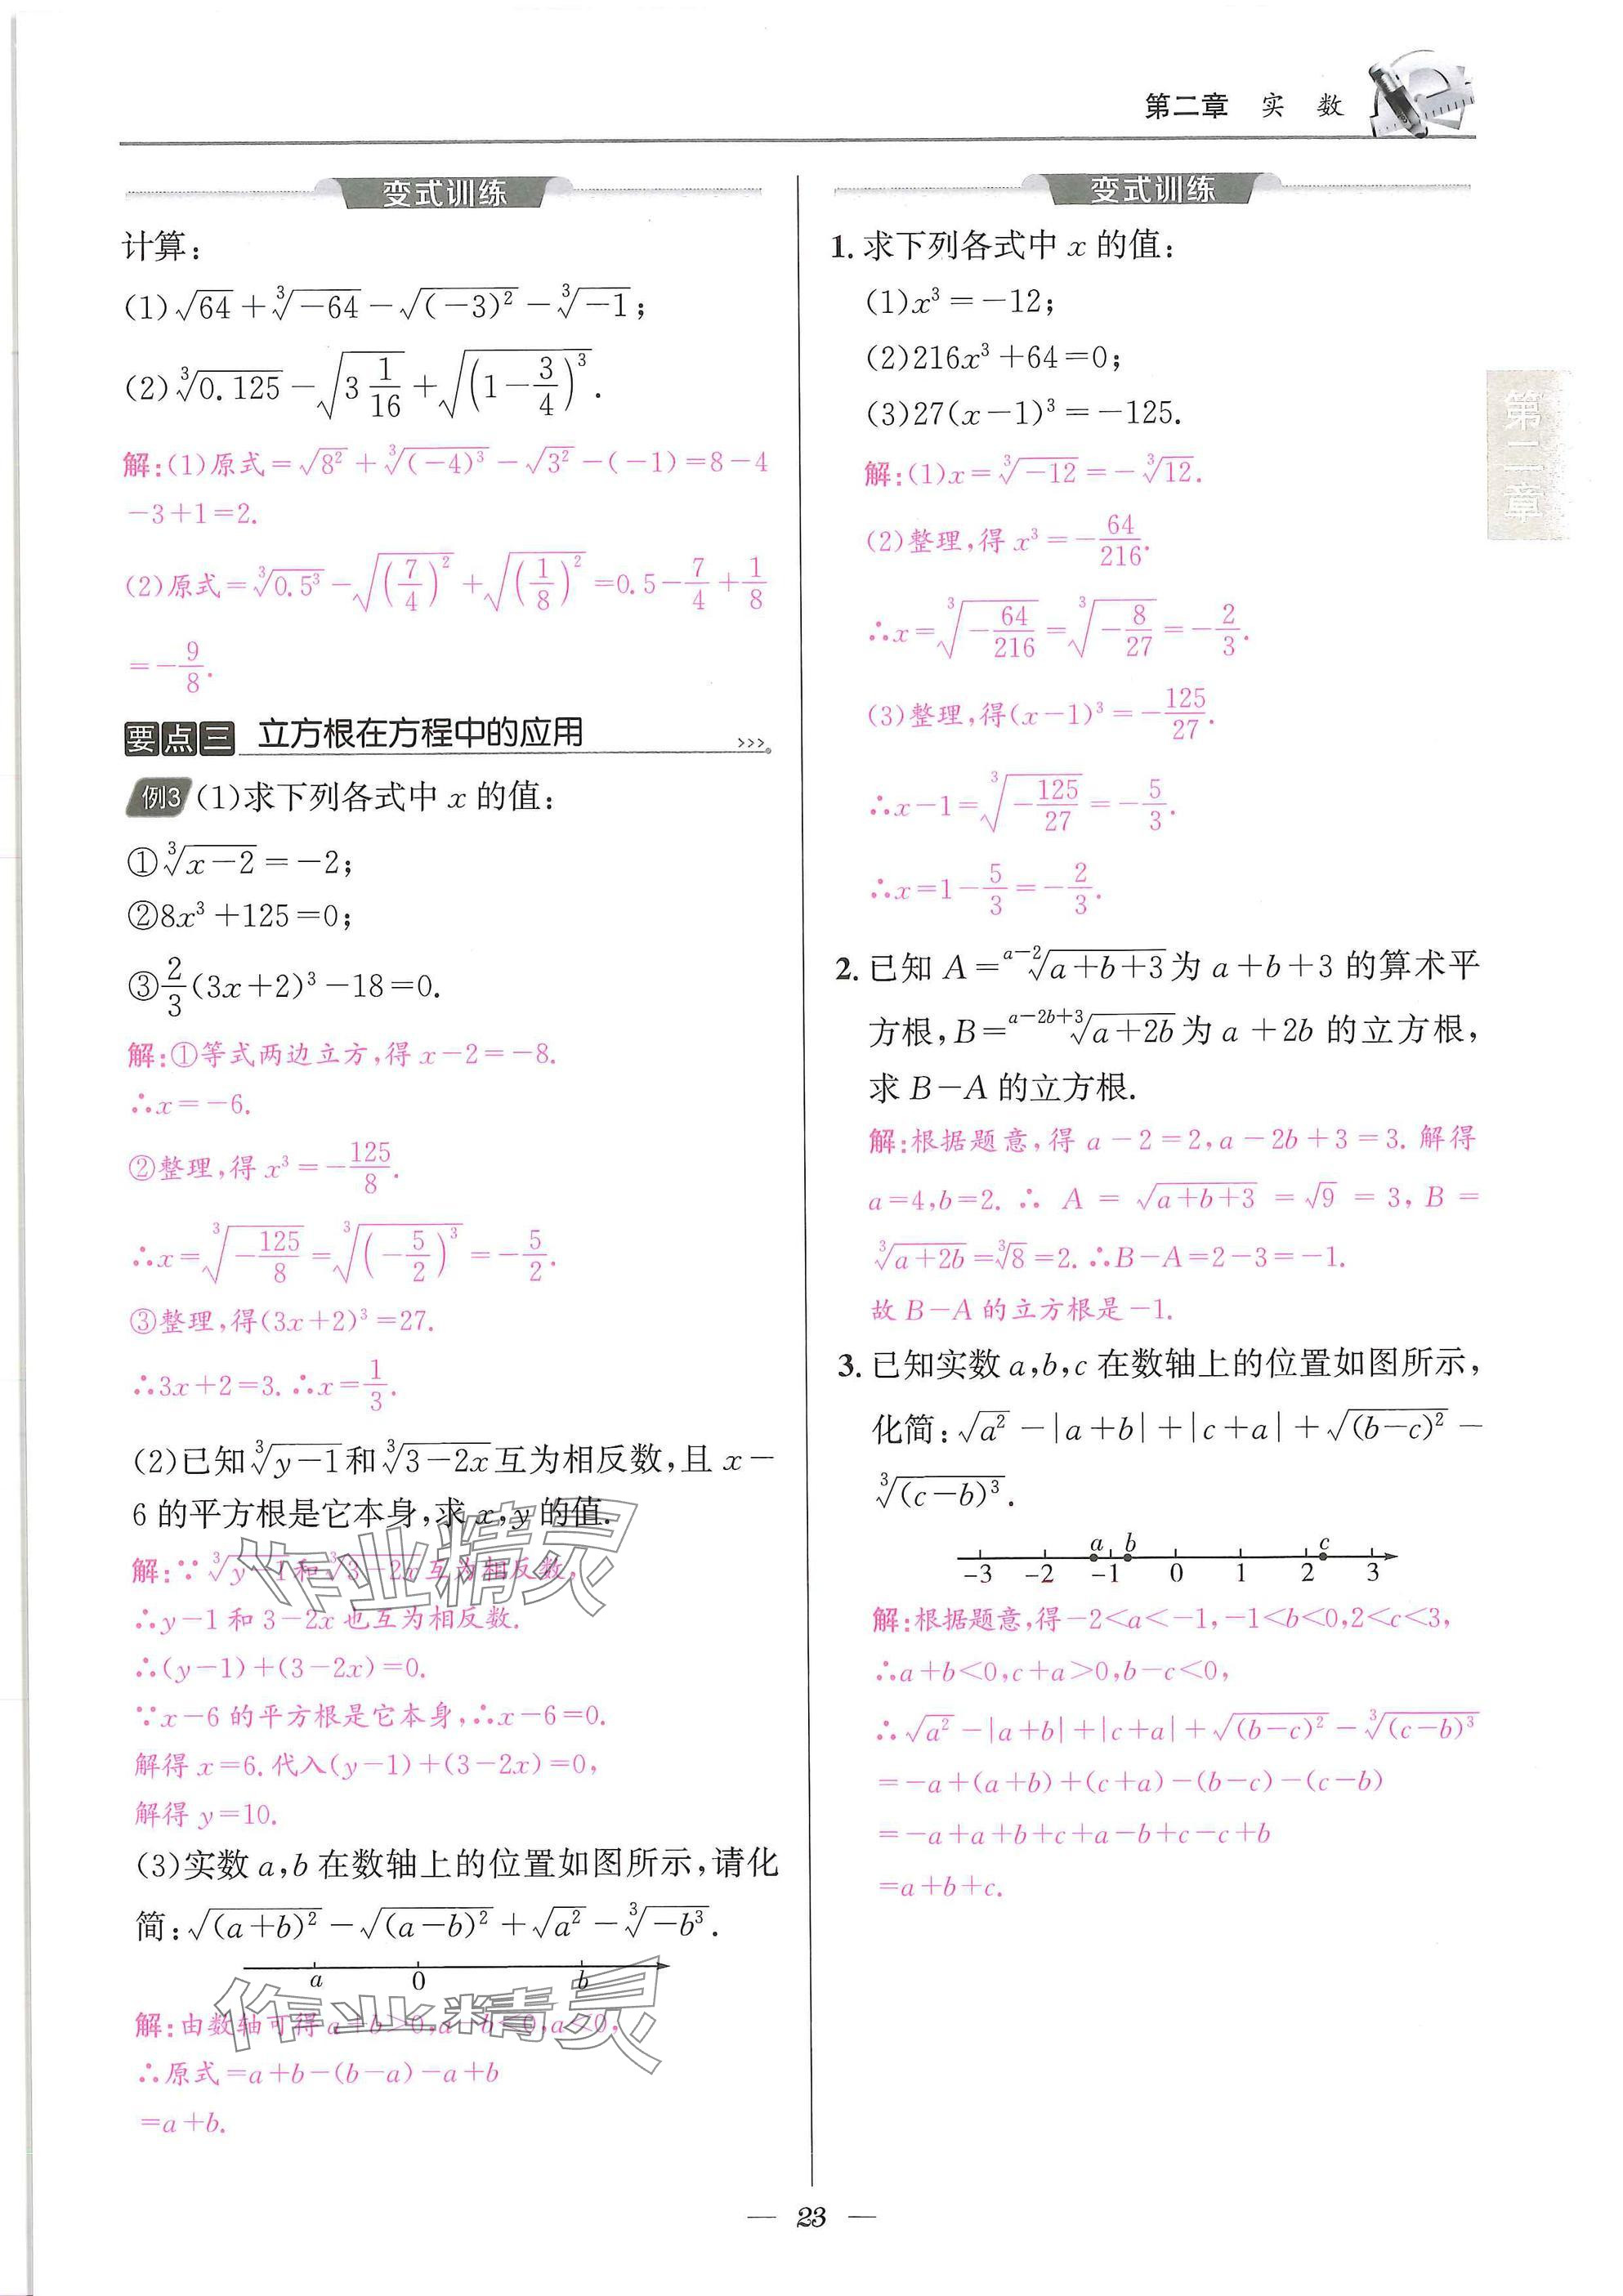 第二章 实 数
变式训练
计算:
(1)√64+∛(-64)-√((-3)²)-∛(-1);
(2)∛0.125-√(3 1/16)+√((1-3/4)³).
解:(1)原式=√(8²)+∛((-4)³)-√(3²)-(-1)=8-4
-3+1=2.
(2)原式=∛(0.5³)-√((7/4)²)+√((1/8)²)=0.5-7/4+1/8
=-9/8.
要点三 立方根在方程中的应用 >>>
例3 (1)求下列各式中 x 的值:
①∛(x-2)=-2;
②8x³+125=0;
③2/3(3x+2)³-18=0.
解:①等式两边立方,得 x-2=-8.
∴x=-6.
②整理,得 x³=-125/8.
∴x=∛(-125/8)=∛((-5/2)³)=-5/2.
③整理,得(3x+2)³=27.
∴3x+2=3.∴x=1/3.
(2)已知∛(y-1)和∛(3-2x)互为相反数,且 x-
6 的平方根是它本身,求 x,y 的值.
解:∵∛(y-1)和∛(3-2x)互为相反数,
∴y-1 和 3-2x 也互为相反数.
∴(y-1)+(3-2x)=0.
∵x-6 的平方根是它本身,∴x-6=0.
解得 x=6.代入(y-1)+(3-2x)=0,
解得 y=10.
(3)实数 a,b 在数轴上的位置如图所示,请化
简:√((a+b)²)-√((a-b)²)+√(a²)-∛(-b³).
a 0 b
解:由数轴可得 a+b>0,a-b<0,a<0,
∴原式=a+b-(b-a)-a+b
=a+b.
变式训练
1. 求下列各式中 x 的值:
(1)x³=-12;
(2)216x³+64=0;
(3)27(x-1)³=-125.
解:(1)x=∛(-12)=-∛12.
(2)整理,得 x³=-64/216.
∴x=∛(-64/216)=∛(-8/27)=-2/3.
(3)整理,得(x-1)³=-125/27.
∴x-1=∛(-125/27)=-5/3.
∴x=1-5/3=-2/3.
2. 已知 A=ᵃ⁻²√(a+b+3)为 a+b+3 的算术平
方根,B=ᵃ⁻²ᵇ⁺³√(a+2b)为 a+2b 的立方根,
求 B-A 的立方根.
解:根据题意,得 a-2=2,a-2b+3=3.解得
a=4,b=2.∴ A=√(a+b+3)=√9=3,B=
∛(a+2b)=∛8=2.∴B-A=2-3=-1.
故 B-A 的立方根是-1.
3. 已知实数 a,b,c 在数轴上的位置如图所示,
化简:√(a²)-|a+b|+|c+a|+√((b-c)²)-
∛((c-b)³).
a b c
-3 -2 -1 0 1 2 3
解:根据题意,得-2<a<-1,-1<b<0,2<c<3,
∴a+b<0,c+a>0,b-c<0,
∴√(a²)-|a+b|+|c+a|+√((b-c)²)-∛((c-b)³)
=-a+(a+b)+(c+a)-(b-c)-(c-b)
=-a+a+b+c+a-b+c-c+b
=a+b+c.
第二章
作业精灵
作业精灵
— 23 —